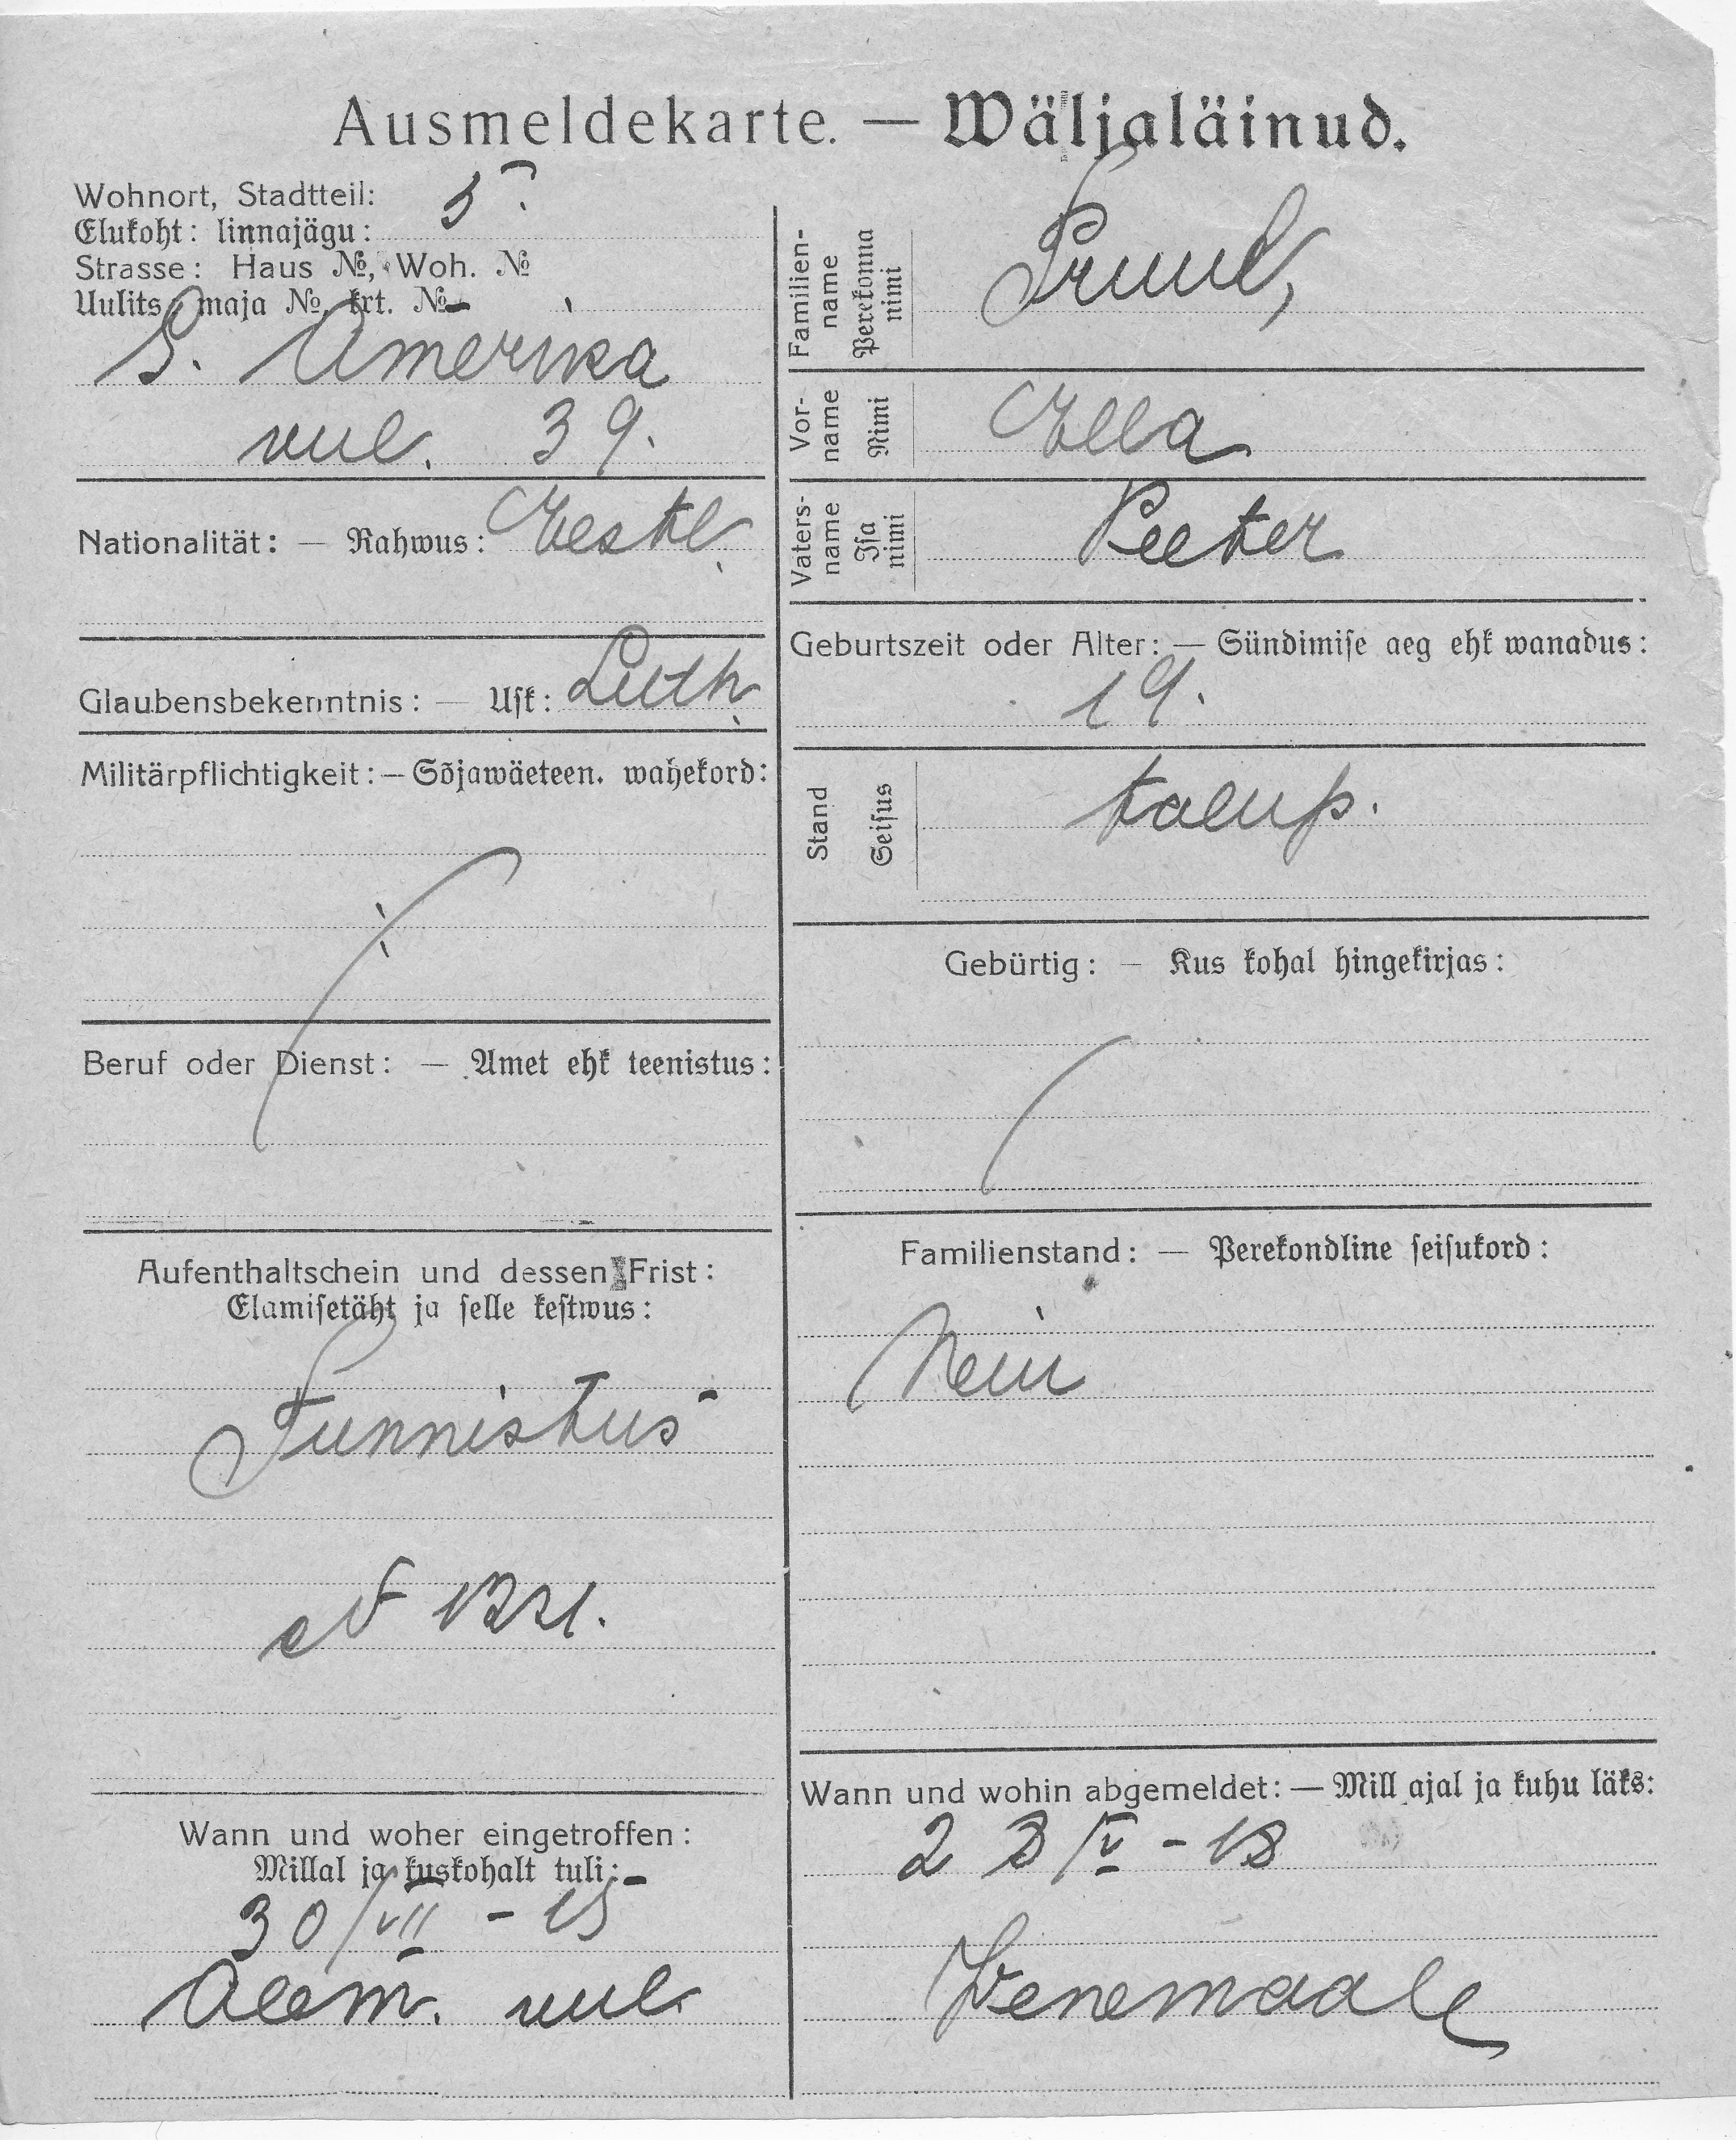 Ausmeldekarte. — Wäljaläinud.
Wohnort, Stadtteil:
Elukoht: linnajägu: 5.
Strasse: Haus №, Woh. №
Uulits, maja №, krt. №
S. Amerika
uul. 39.
Nationalität: — Rahwus: Eestl.
Glaubensbekenntnis: — Usk: Luth.
Militärpflichtigkeit: — Sõjawäeteen. wahekord:
Beruf oder Dienst: — Amet ehk teenistus:
Aufenthaltschein und dessen Frist:
Elamisetäht ja selle kestwus:
Tunnistus
№ 1321.
Wann und woher eingetroffen:
Millal ja kuskohalt tuli:
30/VII - 15
uul.
Familien-
name
Perekonna
nimi
Pruul,
Vor-
name
Nimi
Ella
Vaters-
name
Isa
nimi
Peeter
Geburtszeit oder Alter: — Sündimise aeg ehk wanadus:
19.
Stand
Seisus
talup.
Gebürtig: — Kus kohal hingekirjas:
Familienstand: — Perekondline seisukord:
Neiu
Wann und wohin abgemeldet: — Mill ajal ja kuhu läks:
23/IV - 18
Wenemaale